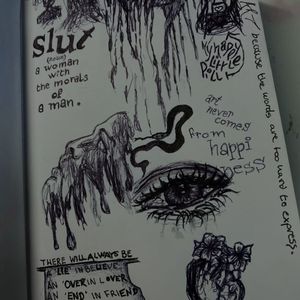 slut
(noun)
a woman
with the
morals
of
a man.
art
never
comes
from
happi
ness
because the words are too hard to express.
THERE WILL ALWAYS BE
A 'LIE' IN BELIEVE
AN 'OVER' IN LOVER
AN 'END' IN FRIEND